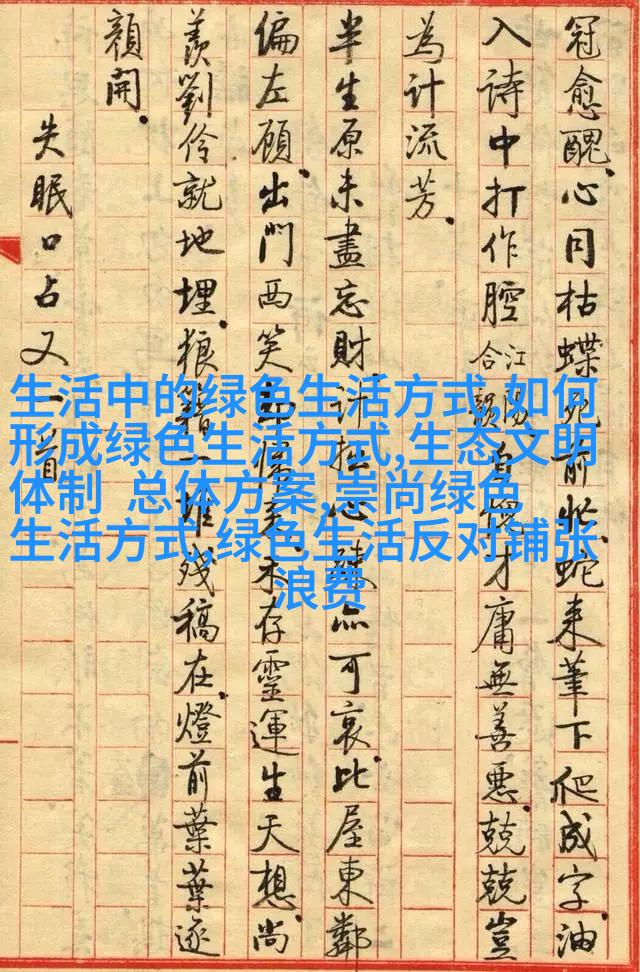 冠愈醜。心同枯蝶死前忙。蛇来筆下爬成字。油
入詩中打作腔。江陽合韻自愧才庸無善惡。兢兢豈
為計流芳。
半生原未盡忘財。計拙心亦可哀。比屋東鄰
偏左顧。出門西笑来。未存靈運生天想。尚
羨劉伶就地埋。狼籍一堆殘稿在。燈前葉葉逐
顏開。
失眠口占又一首
生活中的绿色生活方式,如何
形成绿色生活方式,生态文明
体制 总体方案,崇尚绿色
生活方式,绿色生活反对铺张
浪费